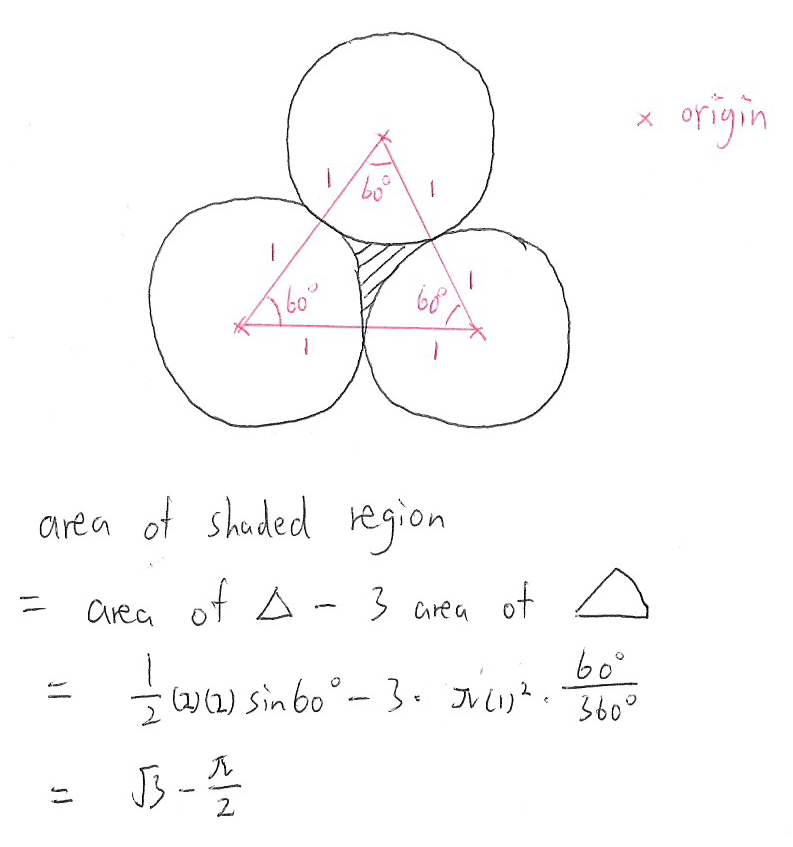 × origin
60°
1
1
1
1
60°
60°
1
1
area of shaded region
= area of △ - 3 area of ⌓
= 1/2 (2)(2) sin60° - 3 · π(1)² · 60°/360°
= √3 - π/2